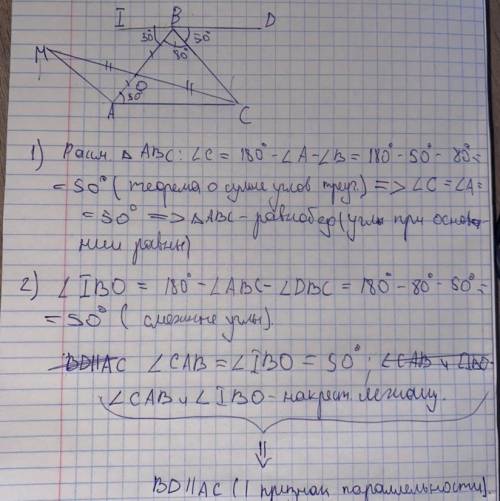 I B D
50° 80° 50°
M
O
50°
A C
1) Рассм. △ ABC: ∠C = 180° - ∠A - ∠B = 180° - 50° - 80° =
= 50° (теорема о сумме углов треуг.) => ∠C = ∠A =
= 50° => △ABC - равнобед (углы при основа-
нии равны)
2) ∠IBO = 180° - ∠ABC - ∠DBC = 180° - 80° - 50° =
= 50° (смежные углы).
BD||AC ∠CAB = ∠IBO = 50°; ∠CAB и ∠IBO-
∠CAB и ∠IBO - накрест лежащие.
BD||AC (1 признак параллельности)